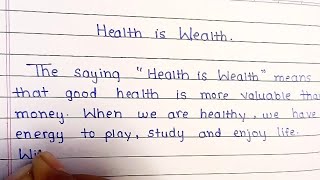 Health is Wealth.
The saying "Health is Wealth" means
that good health is more valuable than
money. When we are healthy, we have
energy to play, study and enjoy life.